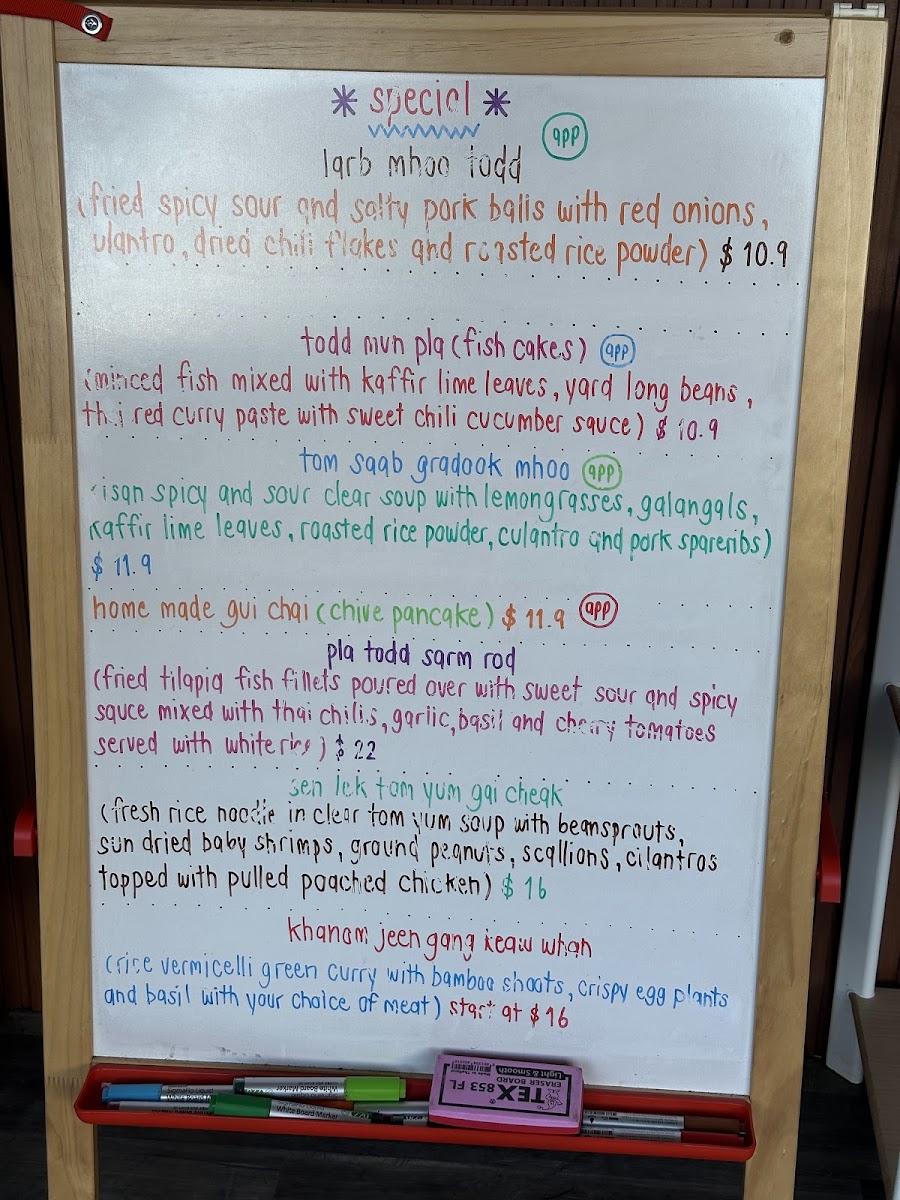 * special *
app
larb mhoo todd
(fried spicy sour and salty pork balls with red onions,
ulantro, dried chili flakes and roasted rice powder) $ 10.9
todd mun pla (fish cakes) app
(minced fish mixed with kaffir lime leaves, yard long beans,
thai red curry paste with sweet chili cucumber sauce) $ 10.9
tom saab gradook mhoo app
(isan spicy and sour clear soup with lemongrasses, galangals,
kaffir lime leaves, roasted rice powder, culantro and pork spareribs)
$ 11.9
home made gui chai (chive pancake) $ 11.9 app
pla todd sarm rod
(fried tilapia fish fillets poured over with sweet sour and spicy
sauce mixed with thai chilis, garlic, basil and cherry tomatoes
served with white rice) $ 22
sen lek tom yum gai cheak
(fresh rice noodle in clear tom yum soup with beansprouts,
sun dried baby shrimps, ground peanuts, scallions, cilantros
topped with pulled poached chicken) $ 16
khanom jeen gang keaw whan
(rice vermicelli green curry with bamboo shoots, crispy egg plants
and basil with your choice of meat) start at $ 16
White Board Marker
White Board Marker
TEX 853 FL
ERASER BOARD
Light & Smooth